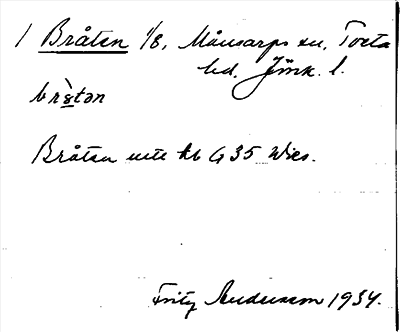 / Bråten 1/8, Månsarps sn, Tveta
hd. Jönk. l.
brɑ̀tən
Bråten
Fritz Andersson 1934.